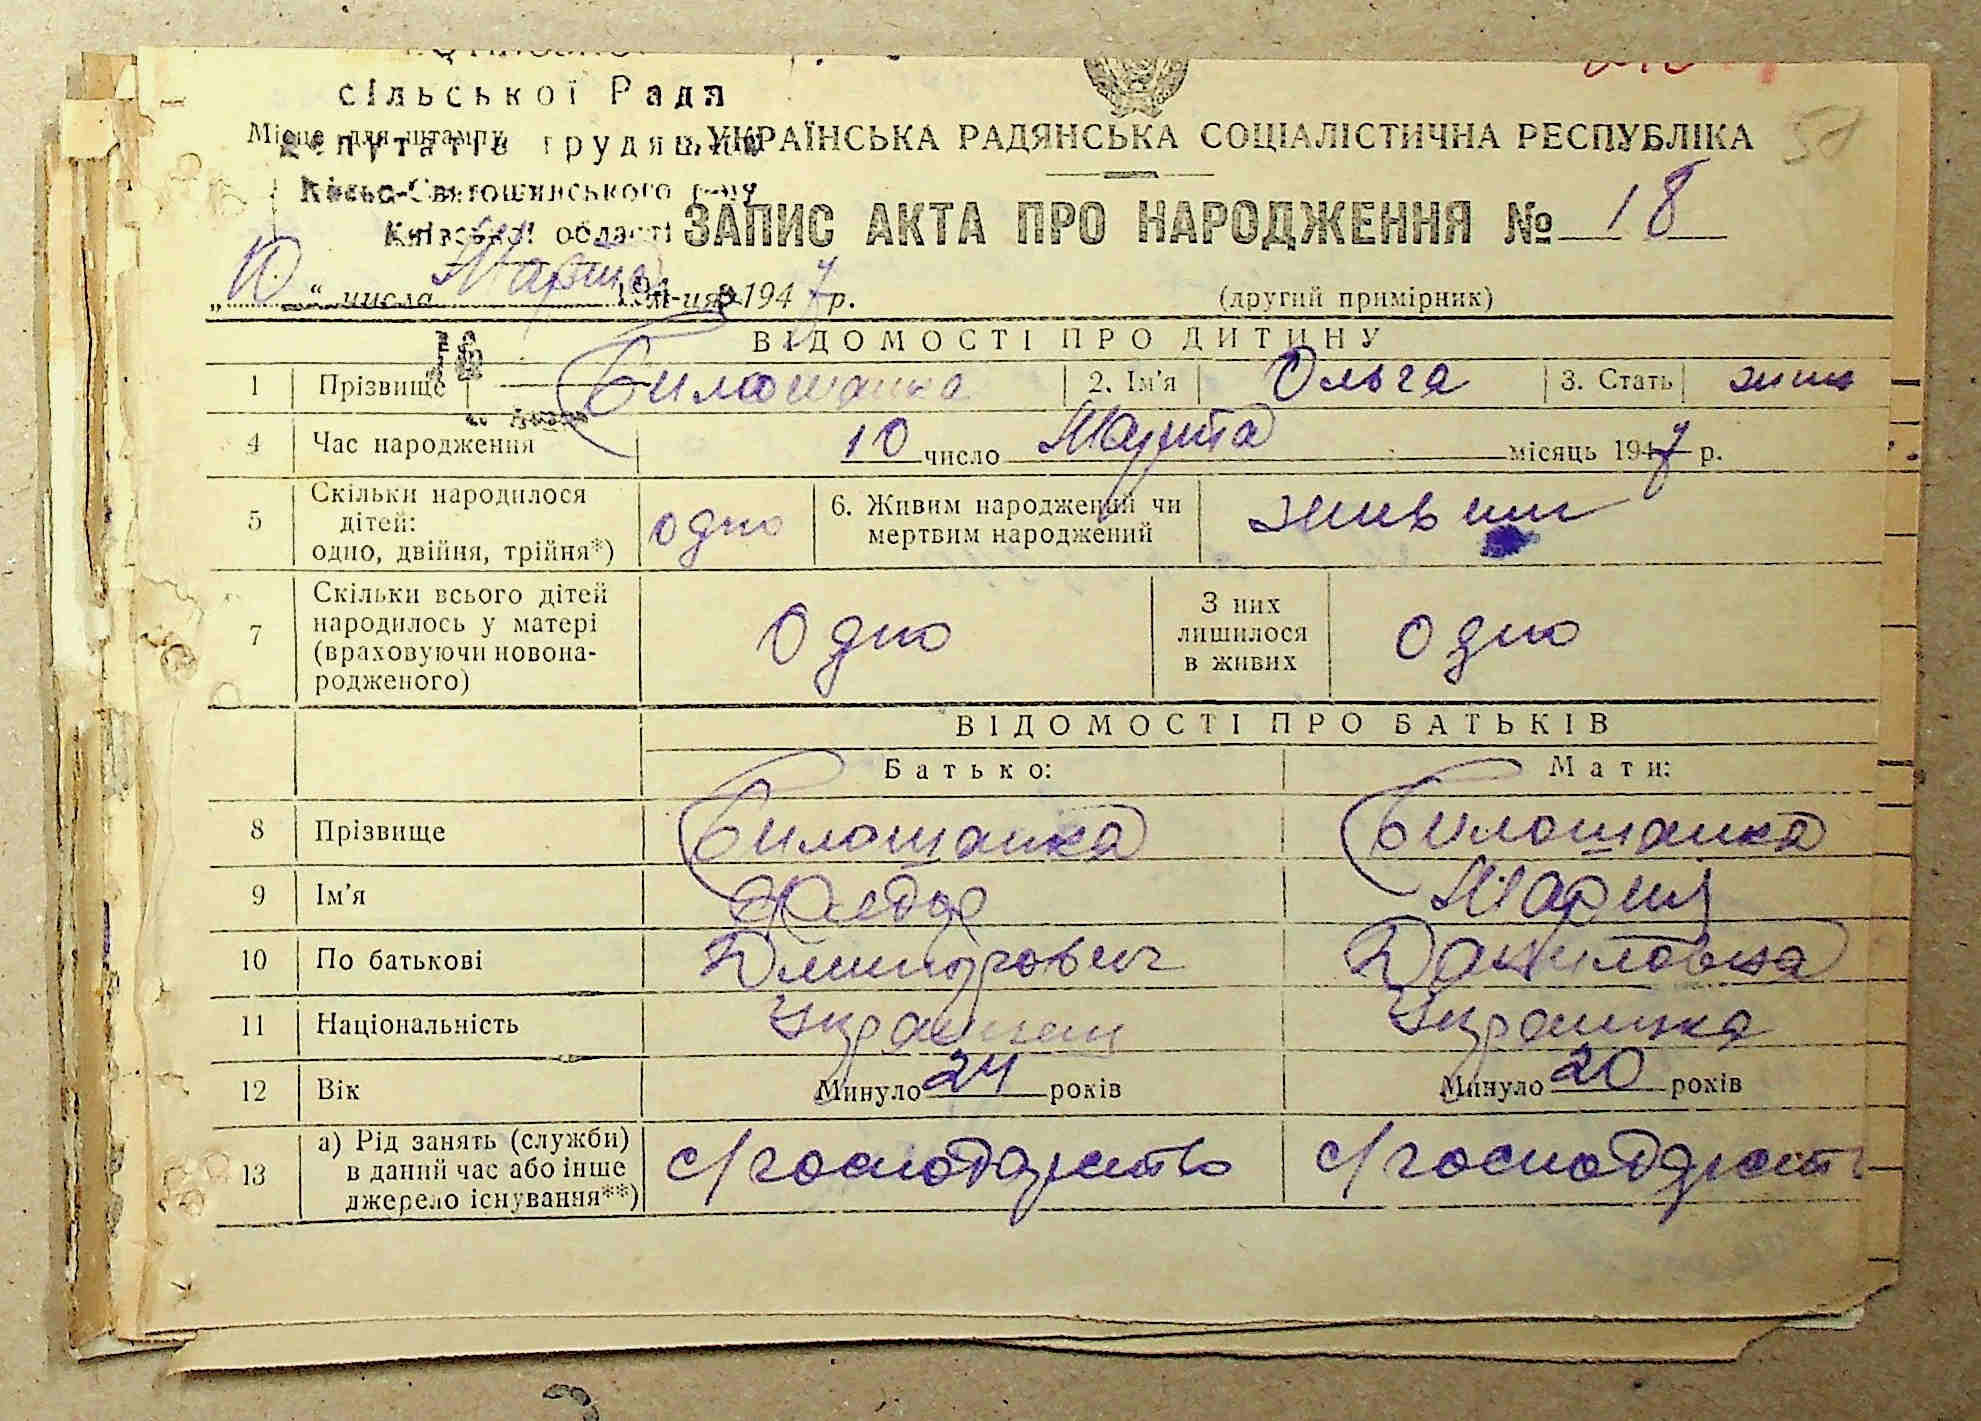 сільської Ради
Місце для штампу
депутатів трудящих
УКРАЇНСЬКА РАДЯНСЬКА СОЦІАЛІСТИЧНА РЕСПУБЛІКА
58
Києво-Святошинського р-ну
Київської області
ЗАПИС АКТА ПРО НАРОДЖЕННЯ № 18
„10“ числа Марта м-ця 1947 р.
(другий примірник)
ВІДОМОСТІ ПРО ДИТИНУ
1 Прізвище Билошапка 2. Ім'я Ольга 3. Стать
4 Час народження 10 число Марта місяць 1947 р.
5 Скільки народилося дітей: одно, двійня, трійня*) одно 6. Живим народжений чи мертвим народжений живим
7 Скільки всього дітей народилось у матері (враховуючи новонародженого) Одно З них лишилося в живих Одно
ВІДОМОСТІ ПРО БАТЬКІВ
Батько: Мати:
8 Прізвище Билошапка Билошапка
9 Ім'я Федор Мария
10 По батькові Дмитрович Даниловна
11 Національність Украинец Украинка
12 Вік Минуло 24 років Минуло 20 років
13 а) Рід занять (служби) в даний час або інше джерело існування**) с/господарство с/господарств